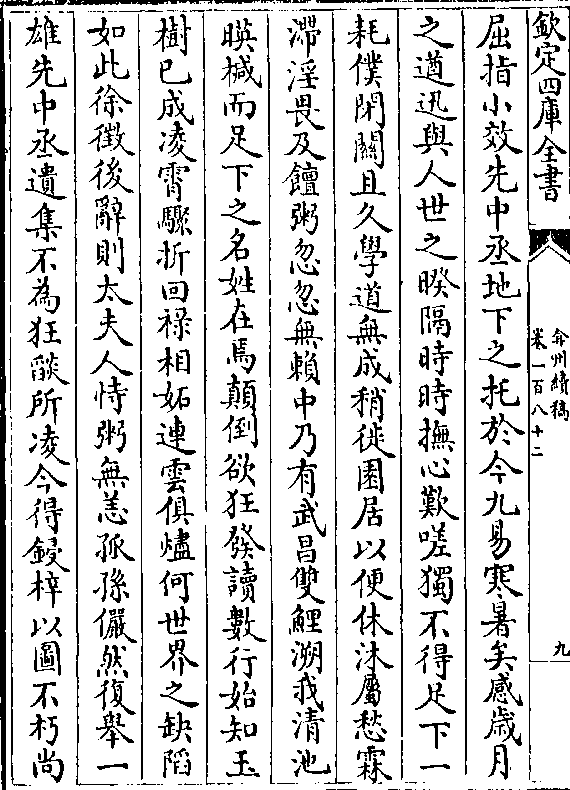 欽定四庫全書
弇州續稿
卷一百八十二
九
屈指小效先中丞地下之托於今九易寒暑矣感歲月
之遒迅與人世之暌隔時時撫心歎嗟獨不得足下一
耗僕閉關且久學道無成稍徙園居以便休沐屬愁霖
滯淫畏及饘粥忽忽無賴中乃有武昌雙鯉溯我清池
暎椷而足下之名姓在焉顛倒欲狂發讀數行始知玉
樹已成凌霄驟折回祿相妬連雲俱燼何世界之缺陷
如此徐徵後辭則太夫人恃粥無恙孤孫儼然復舉一
雄先中丞遺集不為狂燄所凌今得鋟梓以圖不朽尚